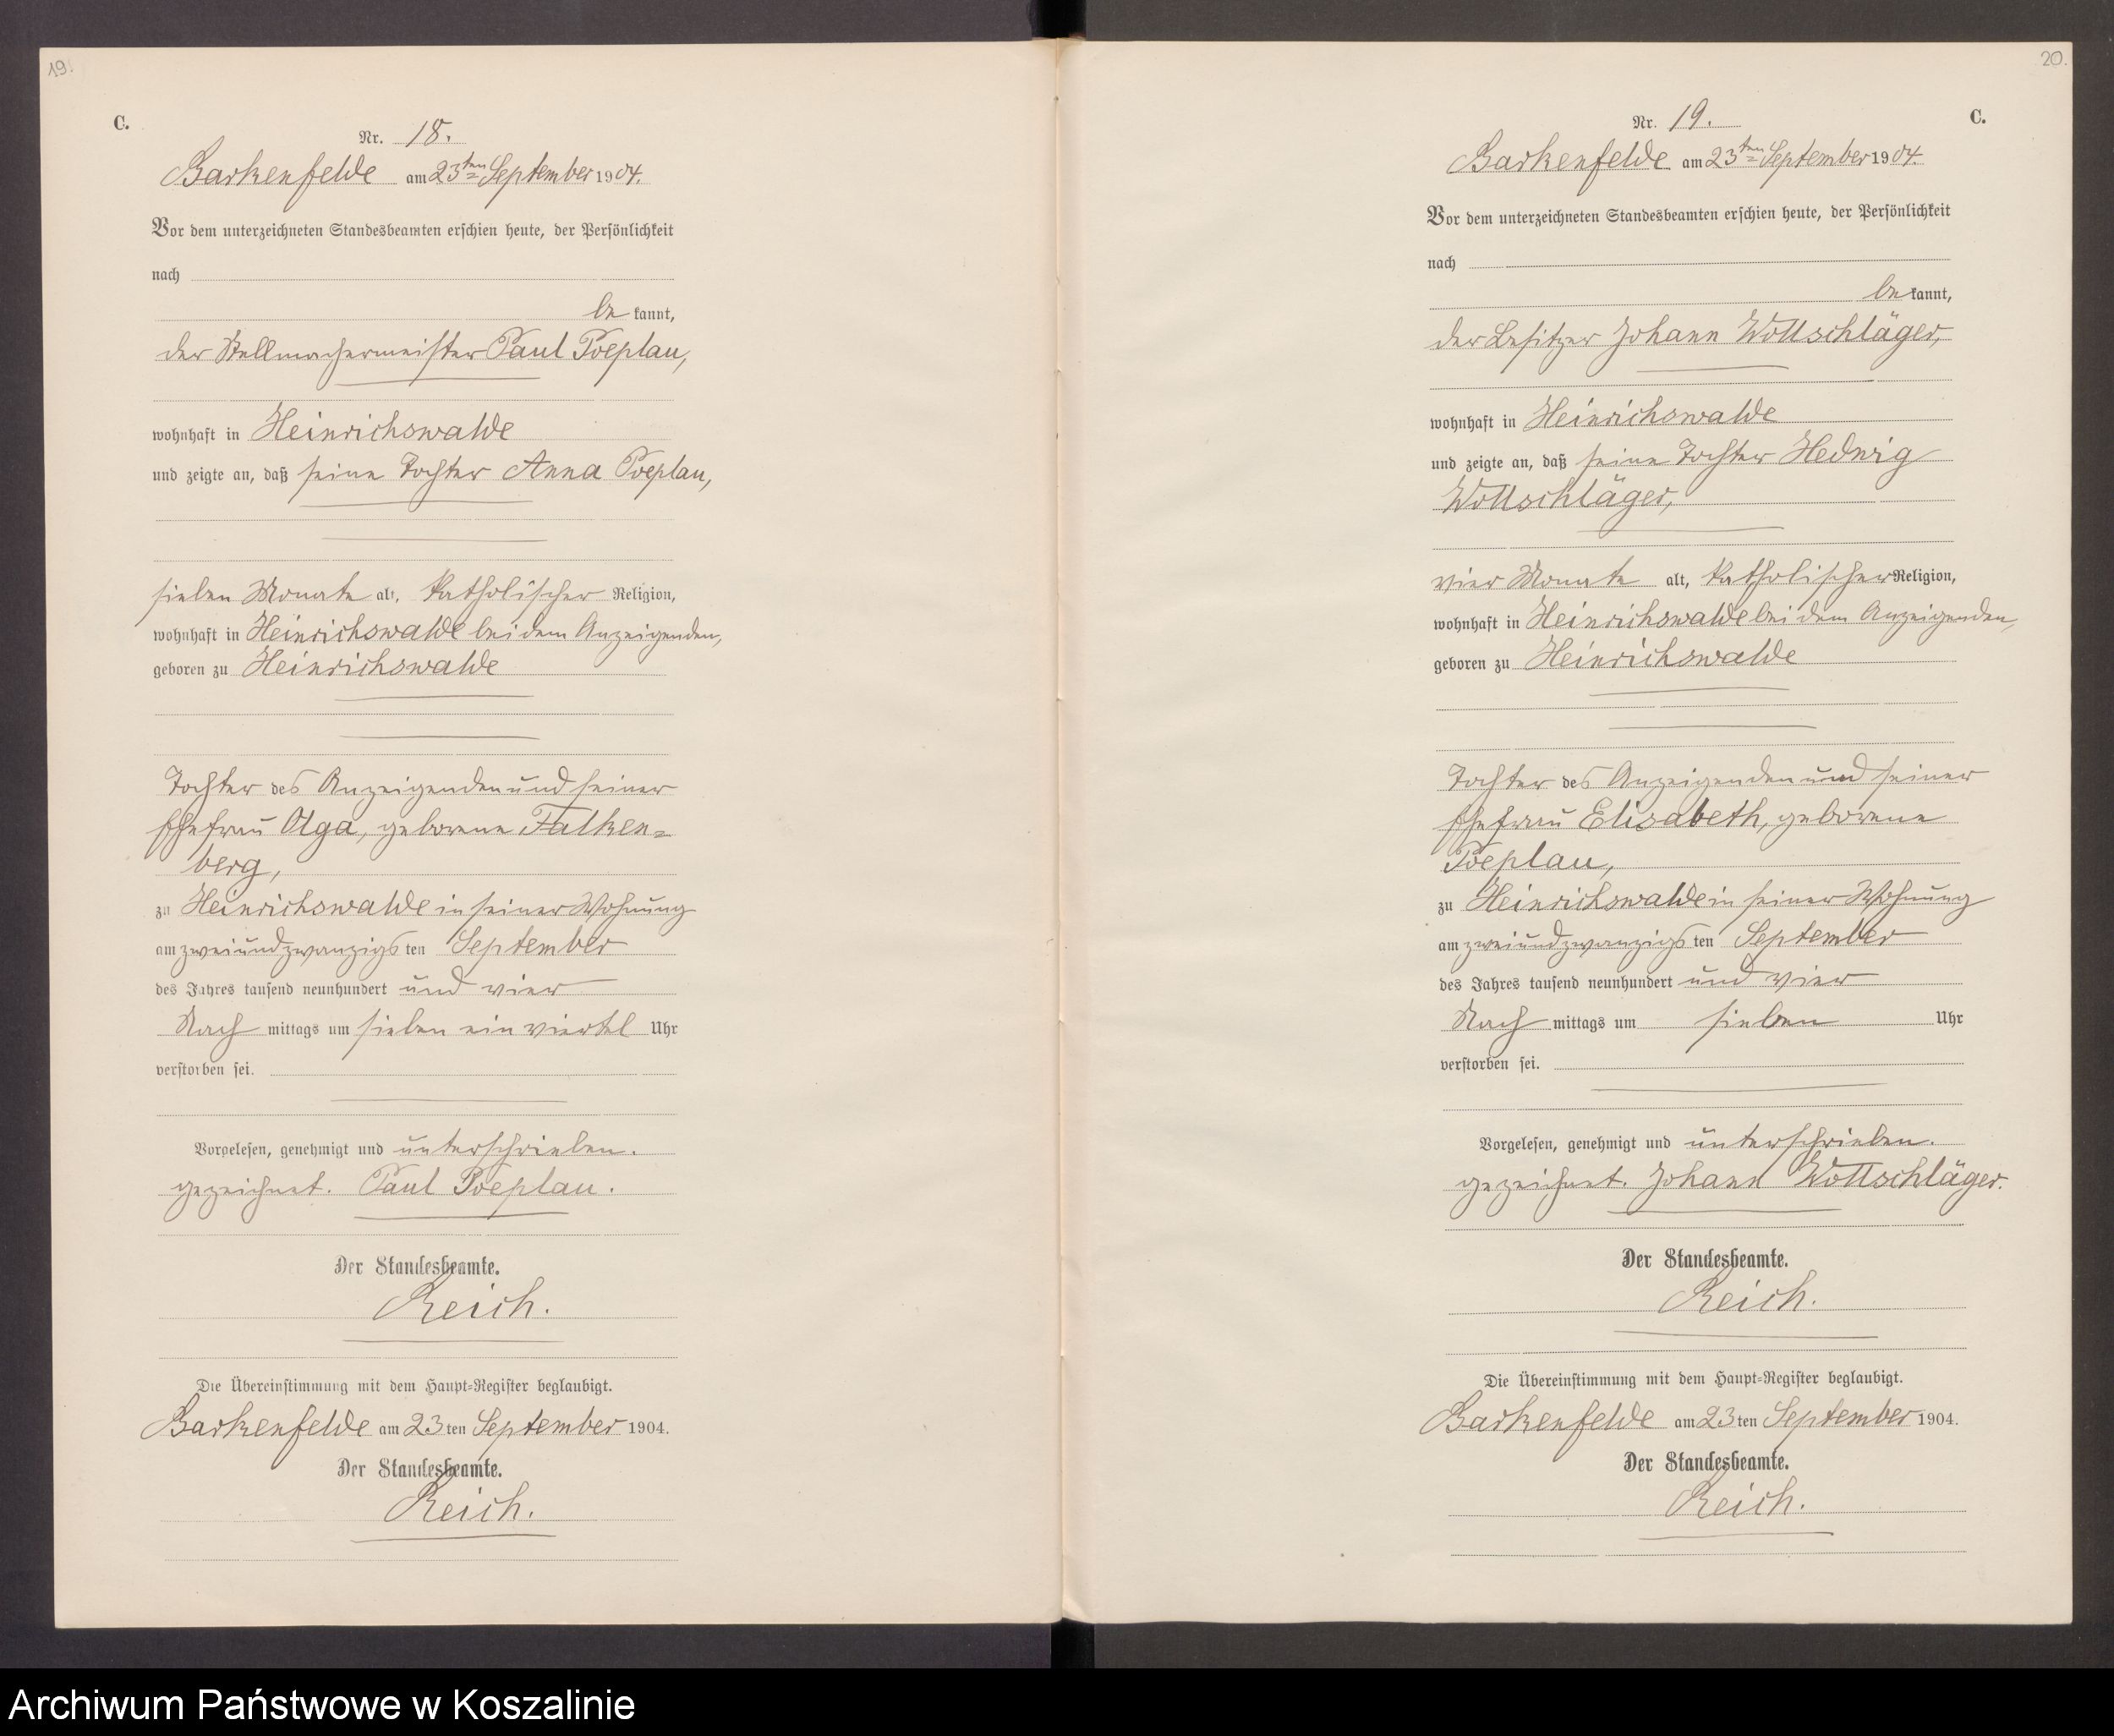 19.
C.
Nr. 18.
Barkenfelde am 23ten September 1904.
Vor dem unterzeichneten Standesbeamten erschien heute, der Persönlichkeit
nach
be kannt,
der Stellmachermeister Paul Poeplau,
wohnhaft in Heinrichswalde
und zeigte an, daß seine Tochter Anna Poeplau,
sieben Monate alt, katholischer Religion,
wohnhaft in Heinrichswalde bei dem Anzeigenden,
geboren zu Heinrichswalde
Tochter des Anzeigenden und seiner
Ehefrau Olga, geborene Falken=
berg,
zu Heinrichswalde in seiner Wohnung
am zweiundzwanzigs ten September
des Jahres tausend neunhundert und vier
Nach mittags um sieben ein viertel Uhr
verstorben sei.
Vorgelesen, genehmigt und unterschrieben.
gezeichnet. Paul Poeplau.
Der Standesbeamte.
Reich.
Die Übereinstimmung mit dem Haupt=Register beglaubigt.
Barkenfelde am 23 ten September 1904.
Der Standesbeamte.
Reich.
20.
C.
Nr. 19.
Barkenfelde am 23ten September 1904
Vor dem unterzeichneten Standesbeamten erschien heute, der Persönlichkeit
nach
be kannt,
der Besitzer Johann Wollschläger,
wohnhaft in Heinrichswalde
und zeigte an, daß seine Tochter Hedwig
Wollschläger,
vier Monate alt, katholischer Religion,
wohnhaft in Heinrichswalde bei dem Anzeigenden,
geboren zu Heinrichswalde
Tochter des Anzeigenden und seiner
Ehefrau Elisabeth, geborene
Poeplau,
zu Heinrichswalde in seiner Wohnung
am zweiundzwanzigs ten September
des Jahres tausend neunhundert und vier
Nach mittags um sieben Uhr
verstorben sei.
Vorgelesen, genehmigt und unterschrieben.
gezeichnet. Johann Wollschläger.
Der Standesbeamte.
Reich.
Die Übereinstimmung mit dem Haupt=Register beglaubigt.
Barkenfelde am 23 ten September 1904.
Der Standesbeamte.
Reich.
Archiwum Państwowe w Koszalinie